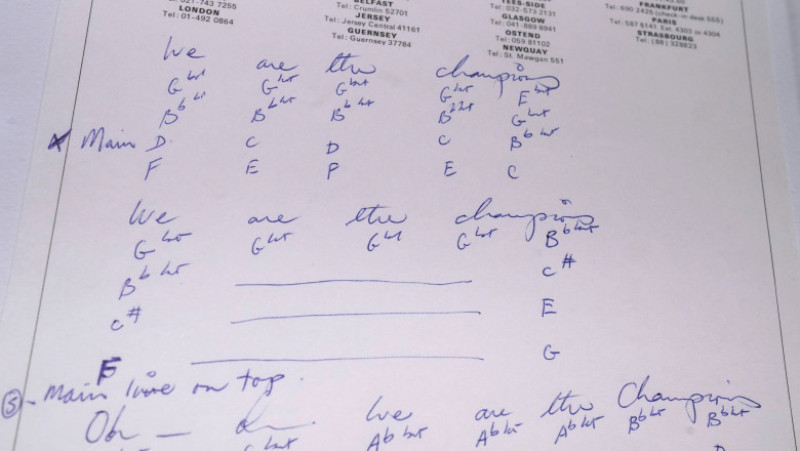 021-743 7255
LONDON
Tel: 01-492 0864
BELFAST
Tel: Crumlin 52701
JERSEY
Tel: Jersey Central 41161
GUERNSEY
Tel: Guernsey 37784
TEES-SIDE
Tel: 032-573 2131
GLASGOW
Tel: 041-889 6941
OSTEND
Tel: 059 81102
NEWQUAY
Tel: St. Mawgan 551
FRANKFURT
Tel: 690 2425 (check-in desk 555)
PARIS
Tel: 587 5141 Ext. 4303 or 4304
STRASBOURG
Tel: (88) 328823
We are the champions
G G G G E
Bb Bb Bb B G
x Main D. C D C Bb
F E F E C
We are the champions
G G G G Bb
Bb C#
C# E
F G
5 - Main line on top.
Oh — We are the Champions
Ab Ab Ab Bb Bb